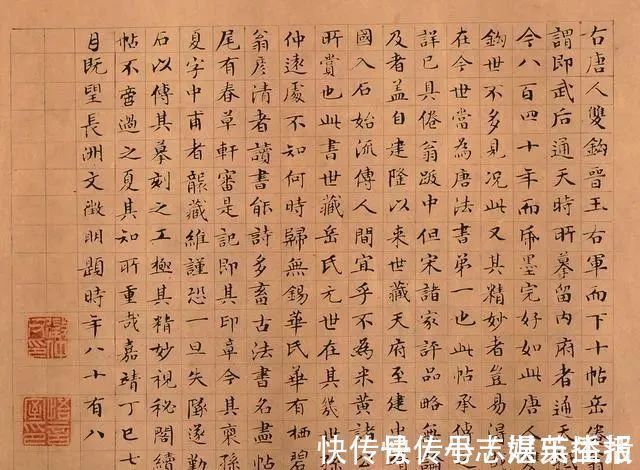 右唐人雙鉤晉王右軍而下十帖岳倦
謂即武后通天時所摹留內府者通天
今八百四十年而帋墨完好如此唐人
鉤世不多見況此又其精妙者豈易得
在今世當為唐法書第一也此帖承傳
詳已具倦翁跋中但宋諸家評品略無
及者蓋自建隆以來世藏天府至建中
國入石始流傳人間宜乎不為米黃諸
所賞也此書世藏岳氏元世在其幾世
仲遠處不知何時歸無錫華氏華有栖碧
翁彥清者讀書能詩多畜古法書名畫帖
尾有春草軒審是記即其印章今其裔孫
夏字中甫者寵藏維謹恐一旦失墜遂勒
石以傳其摹刻之工極其精妙視秘閣續
帖不啻過之夏其知所重哉嘉靖丁巳七
月既望長洲文徵明題時年八十有八
快传号